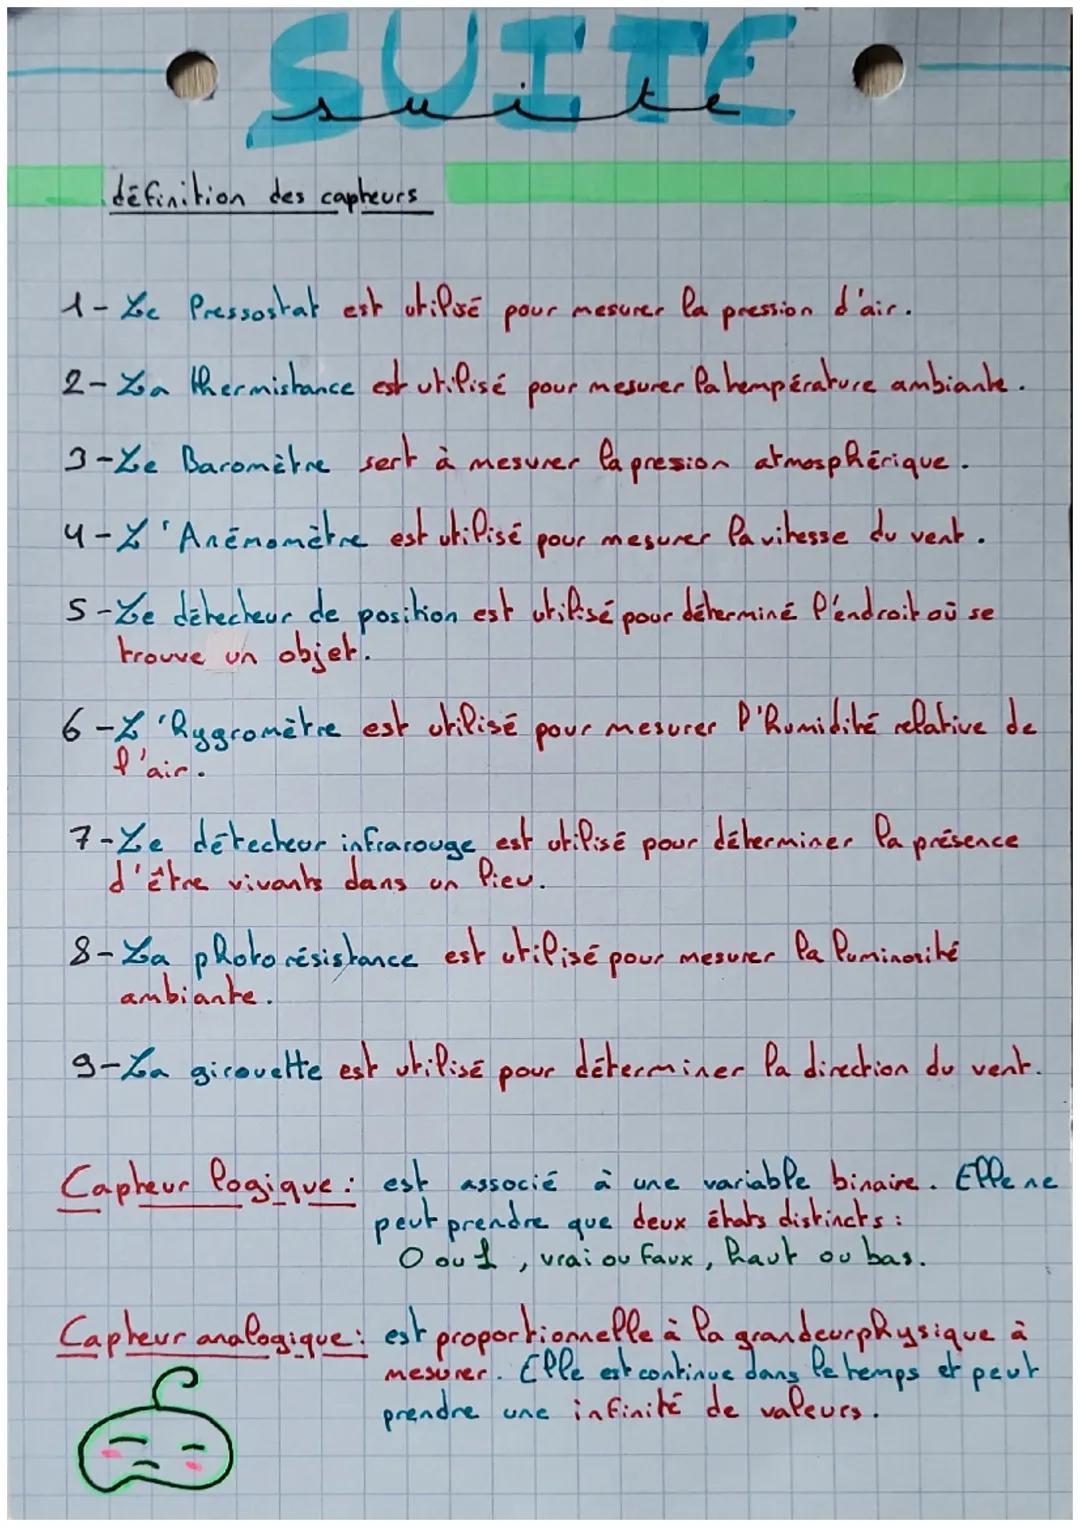 SUITE
suite
définition des capteurs
1- Le Pressostat est utilisé pour mesurer la pression d'air.
2- La thermistance est utilisé pour mesurer la température ambiante.
3- Le Baromètre sert à mesurer la pression atmosphérique.
4- L'Anémomètre est utilisé pour mesurer la vitesse du vent.
5- Le détecteur de position est utilisé pour déterminé l'endroit où se
trouve un objet.
6- L'hygromètre est utilisé pour mesurer l'humidité relative de
l'air.
7- Le détecteur infrarouge est utilisé pour déterminer la présence
d'être vivants dans un lieu.
8- La photorésistance est utilisé pour mesurer la luminosité
ambiante.
9- La girouette est utilisé pour déterminer la direction du vent.
Capteur logique : est associé à une variable binaire. Elle ne
peut prendre que deux états distincts :
0 ou 1, vrai ou faux, haut ou bas.
Capteur analogique : est proportionnelle à la grandeur physique à
mesurer. Elle est continue dans le temps et peut
prendre une infinité de valeurs.